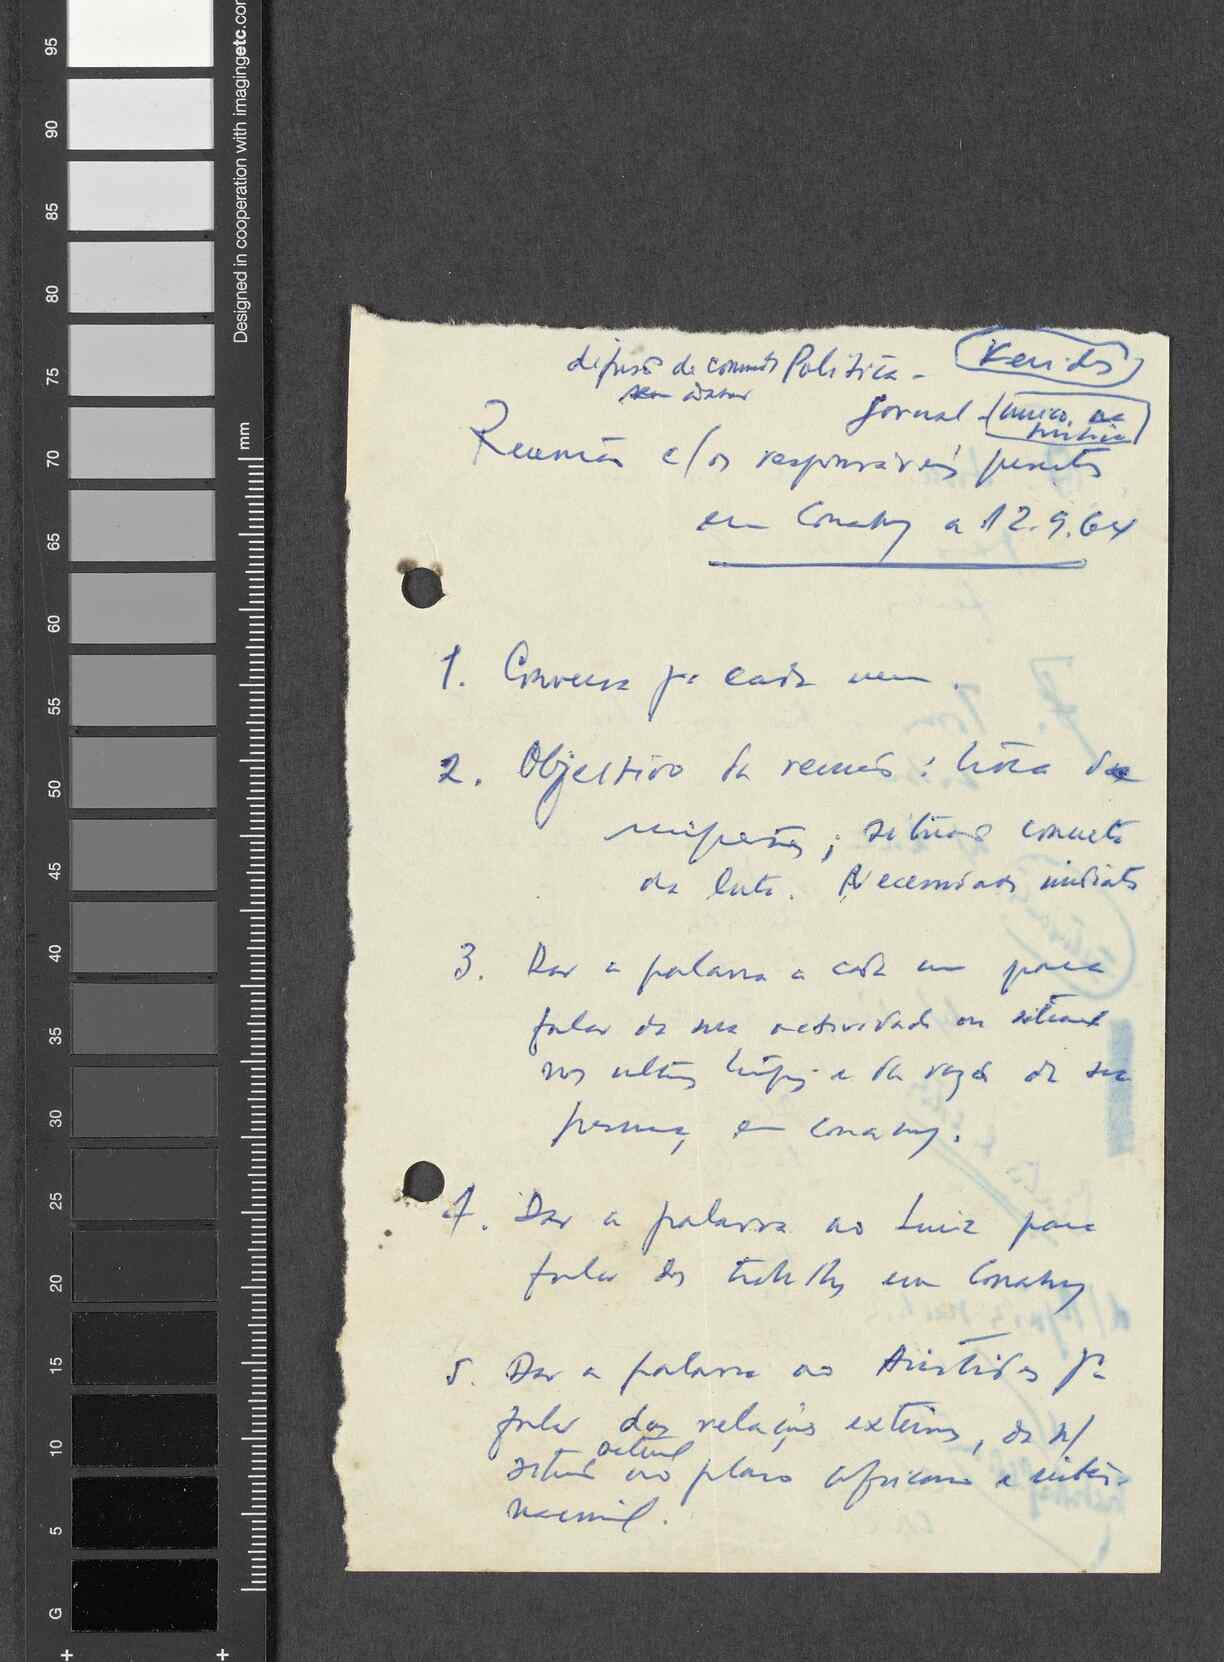 95
90
85
80
75
70
65
60
55
50
45
40
35
30
25
20
15
10
5
G
Designed in cooperation with imagingetc.com
mm
difusão de Política -
Jornal -
Reunião c/ os responsáveis
em Conakry a 12.9.64
1. Conversa pª cada um.
2. Objectivo da reunião: troca de
; situação concreta
da luta. Necessidades imediatas
3. Dar a palavra a cada um para
falar da sua actividade ou situação
nos e da razão da sua
em Conakry.
4. Dar a palavra ao Luiz para
falar dos trabalhos em Conakry
5. Dar a palavra ao Aristides pª
falar das relações externas, da n/
situação actual no plano africano e inter-
nacional.